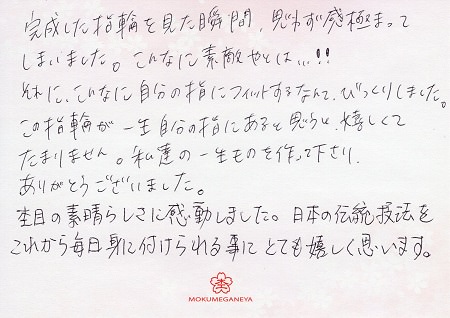 完成した指輪を見た瞬間、思わず感極まって
しまいました。こんなに素敵やとは…!!
それに、こんなに自分の指にフィットするなんて、びっくりしました。
この指輪が一生自分の指にあると思うと、嬉しくて
たまりません。私達の一生ものを作って下さり、
ありがとうございました。
杢目の素晴らしさに感動しました。日本の伝統技法を
これから毎日身に付けられる事にとても嬉しく思います。
杢
MOKUMEGANEYA